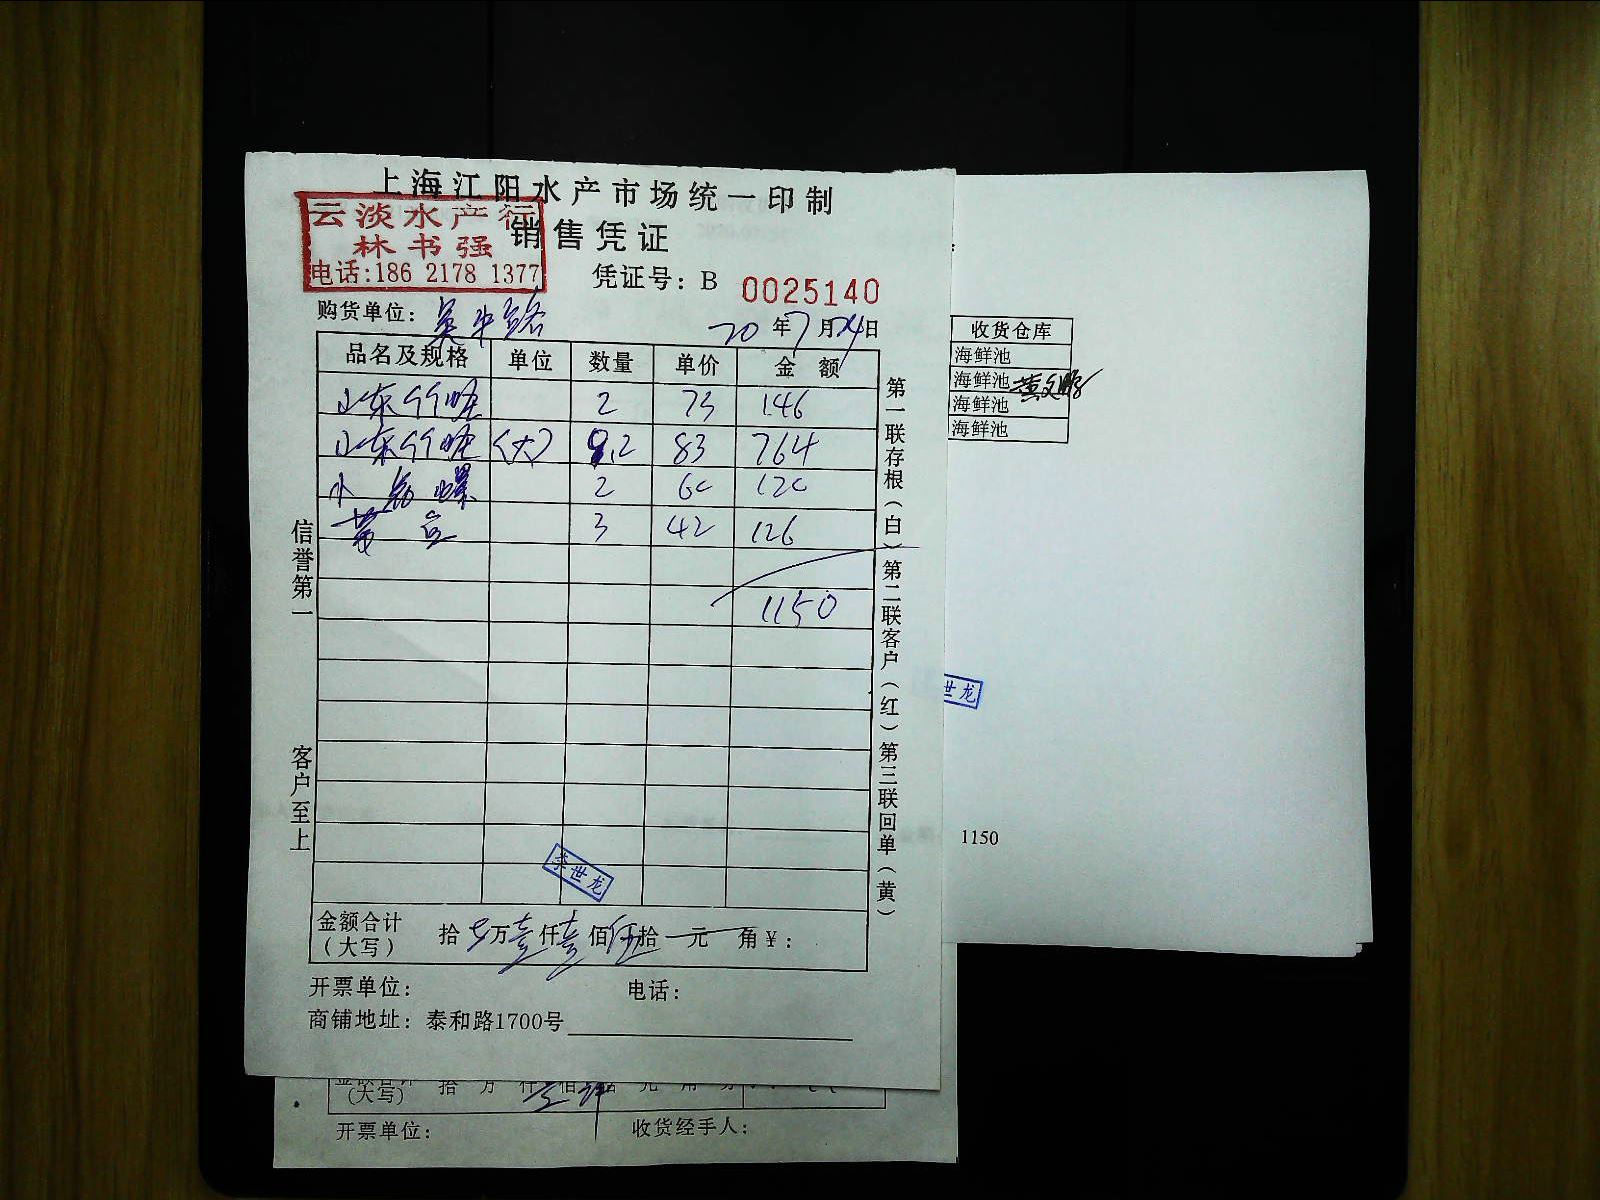 上海江阳水产市场统一印制
云淡水产行
林书强
电话:186 2178 1377
销售凭证
凭证号: B 0025140
购货单位: 吴中路
20年7月24日
品名及规格 单位 数量 单价 金额
山东竹蛏 2 73 146
山东竹蛏 (大) 9.2 83 764
小 螺 2 60 120
3 42 126
1150
信誉第一
客户至上
第一联存根(白)第二联客户(红)第三联回单(黄)
李世龙
金额合计
(大写)
拾 万壹仟壹佰伍拾 元 角¥:
开票单位: 电话:
商铺地址: 泰和路1700号
收货仓库
海鲜池
海鲜池
海鲜池
海鲜池
世龙
1150
(大写) 拾 万 仟 佰 拾 元 角 分
开票单位: 收货经手人: